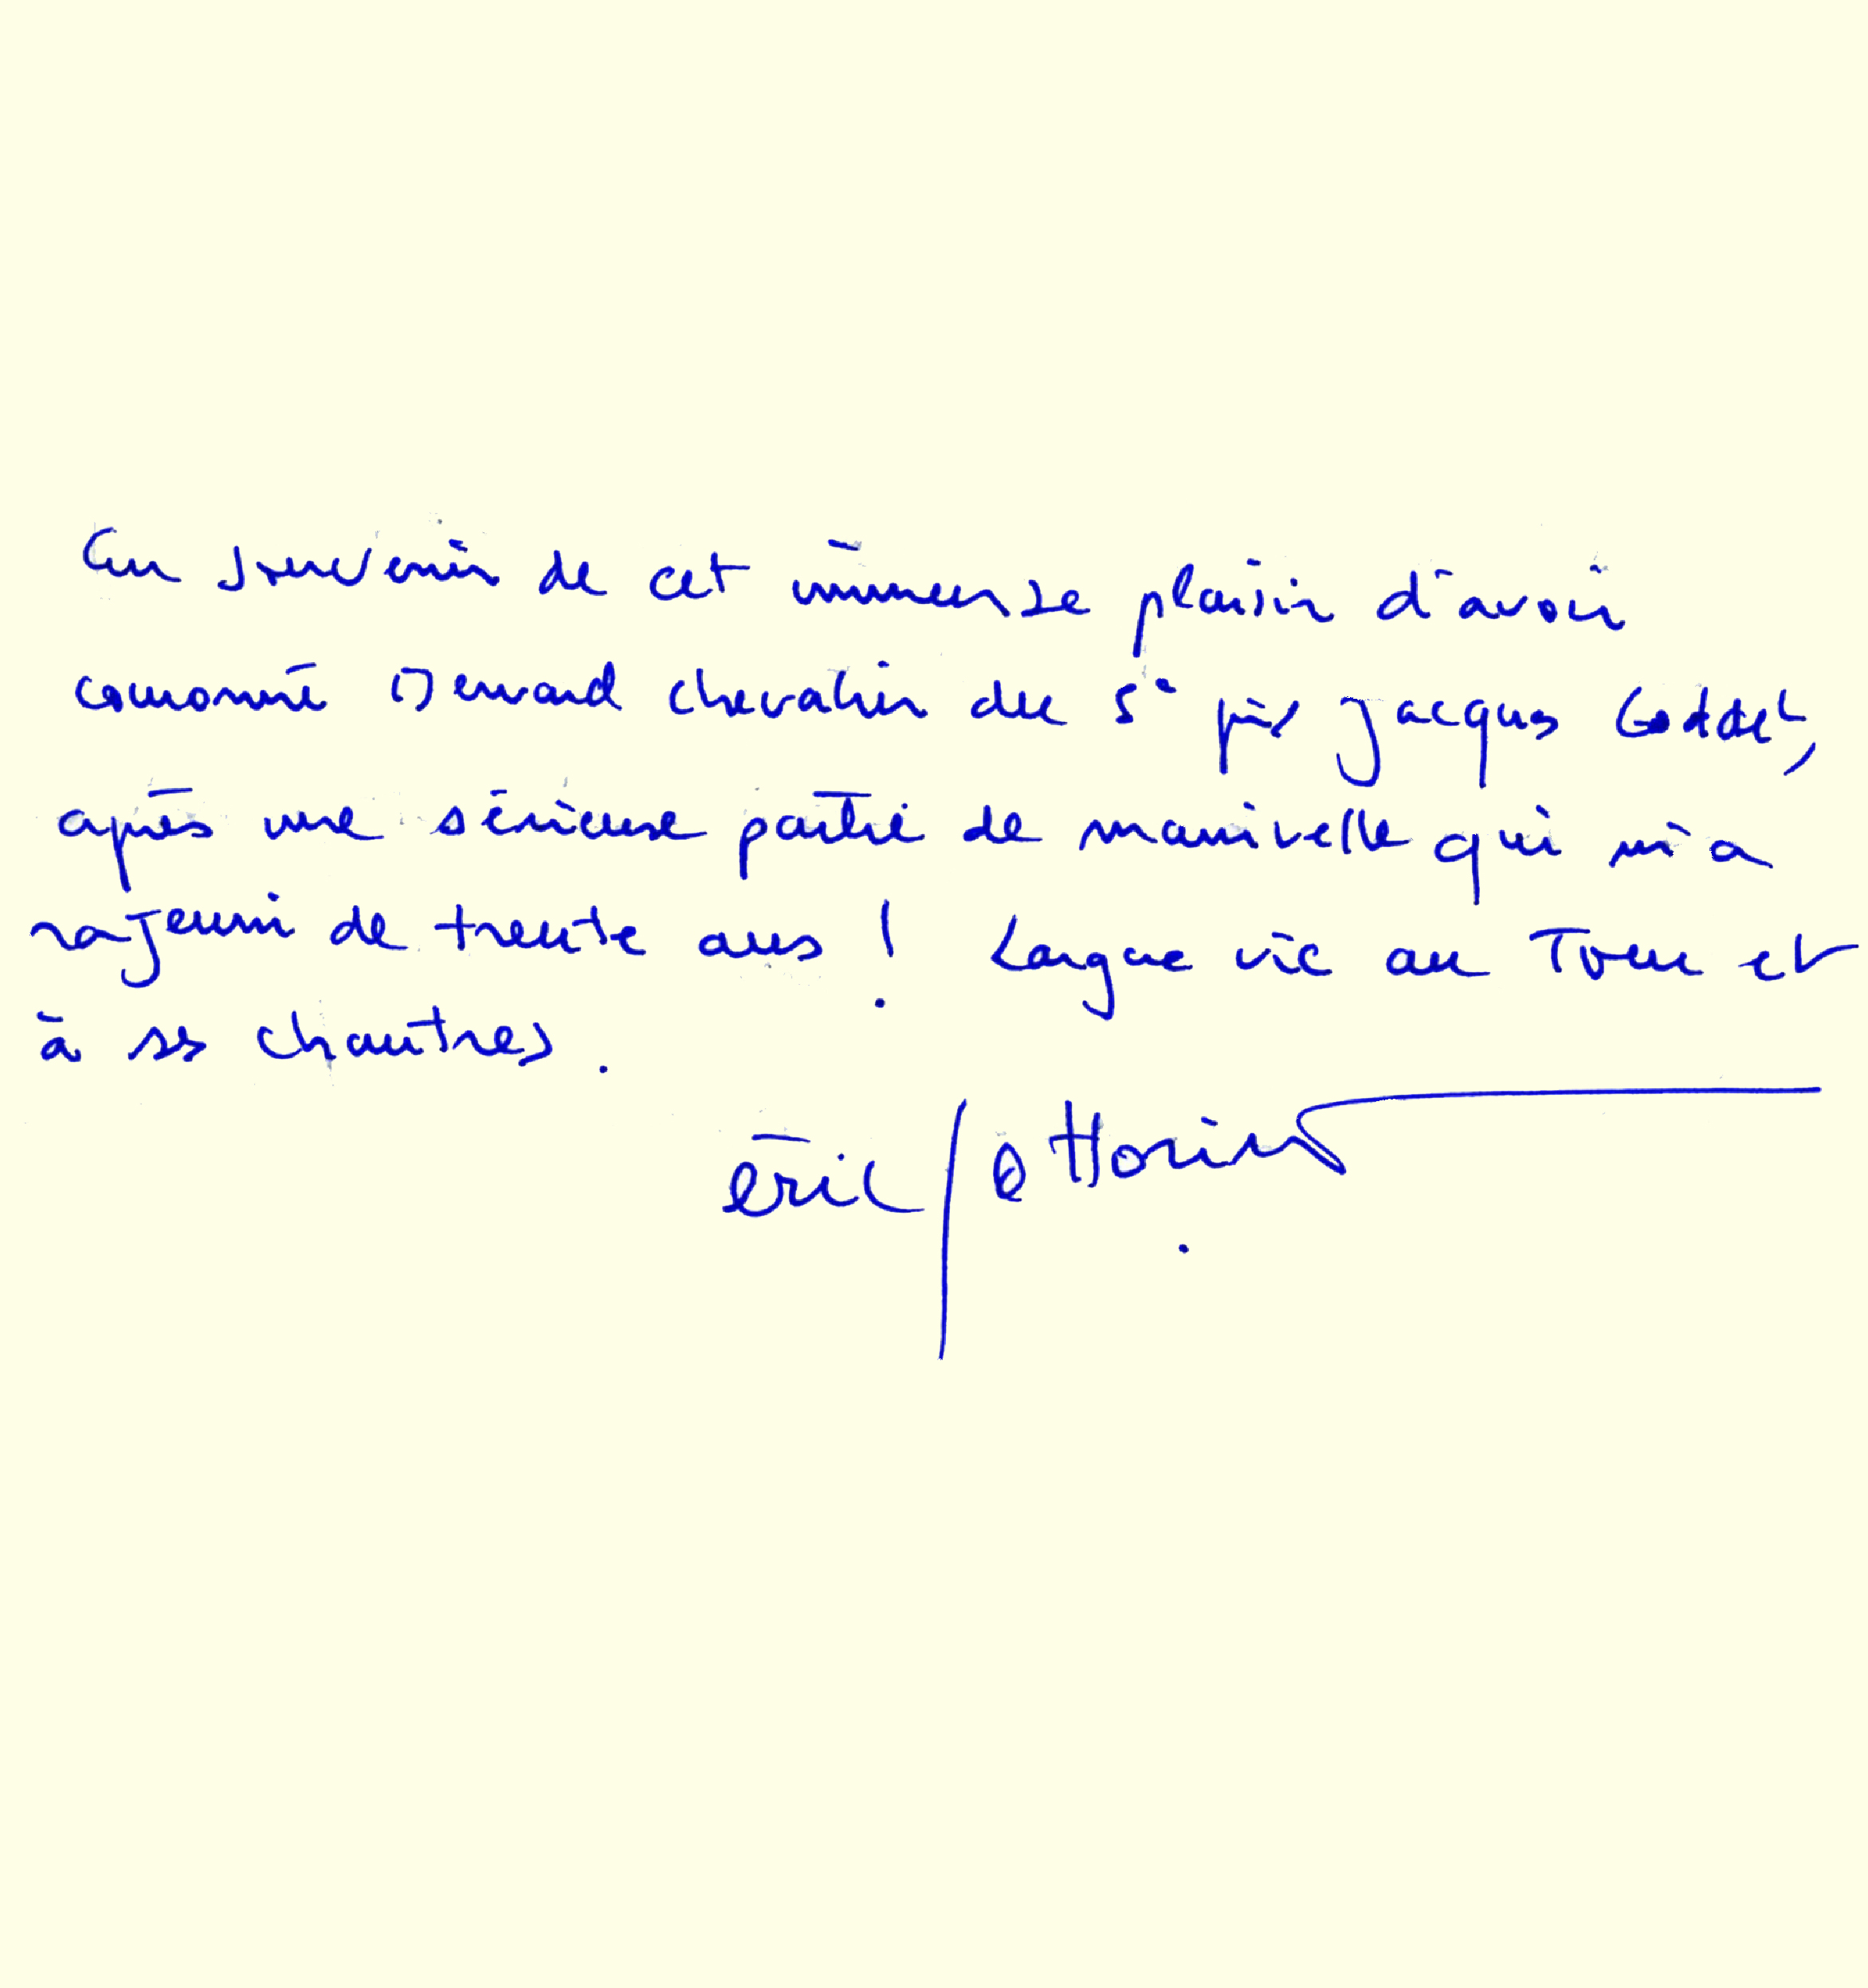 En souvenir de cet immense plaisir d'avoir
couronné Bernard Chevalier du 5e prix Jacques Goddet,
après une sérieuse partie de manivelle qui m'a
rajeuni de trente ans ! Longue vie au Tour et
à ses chantres.
éric fottorino